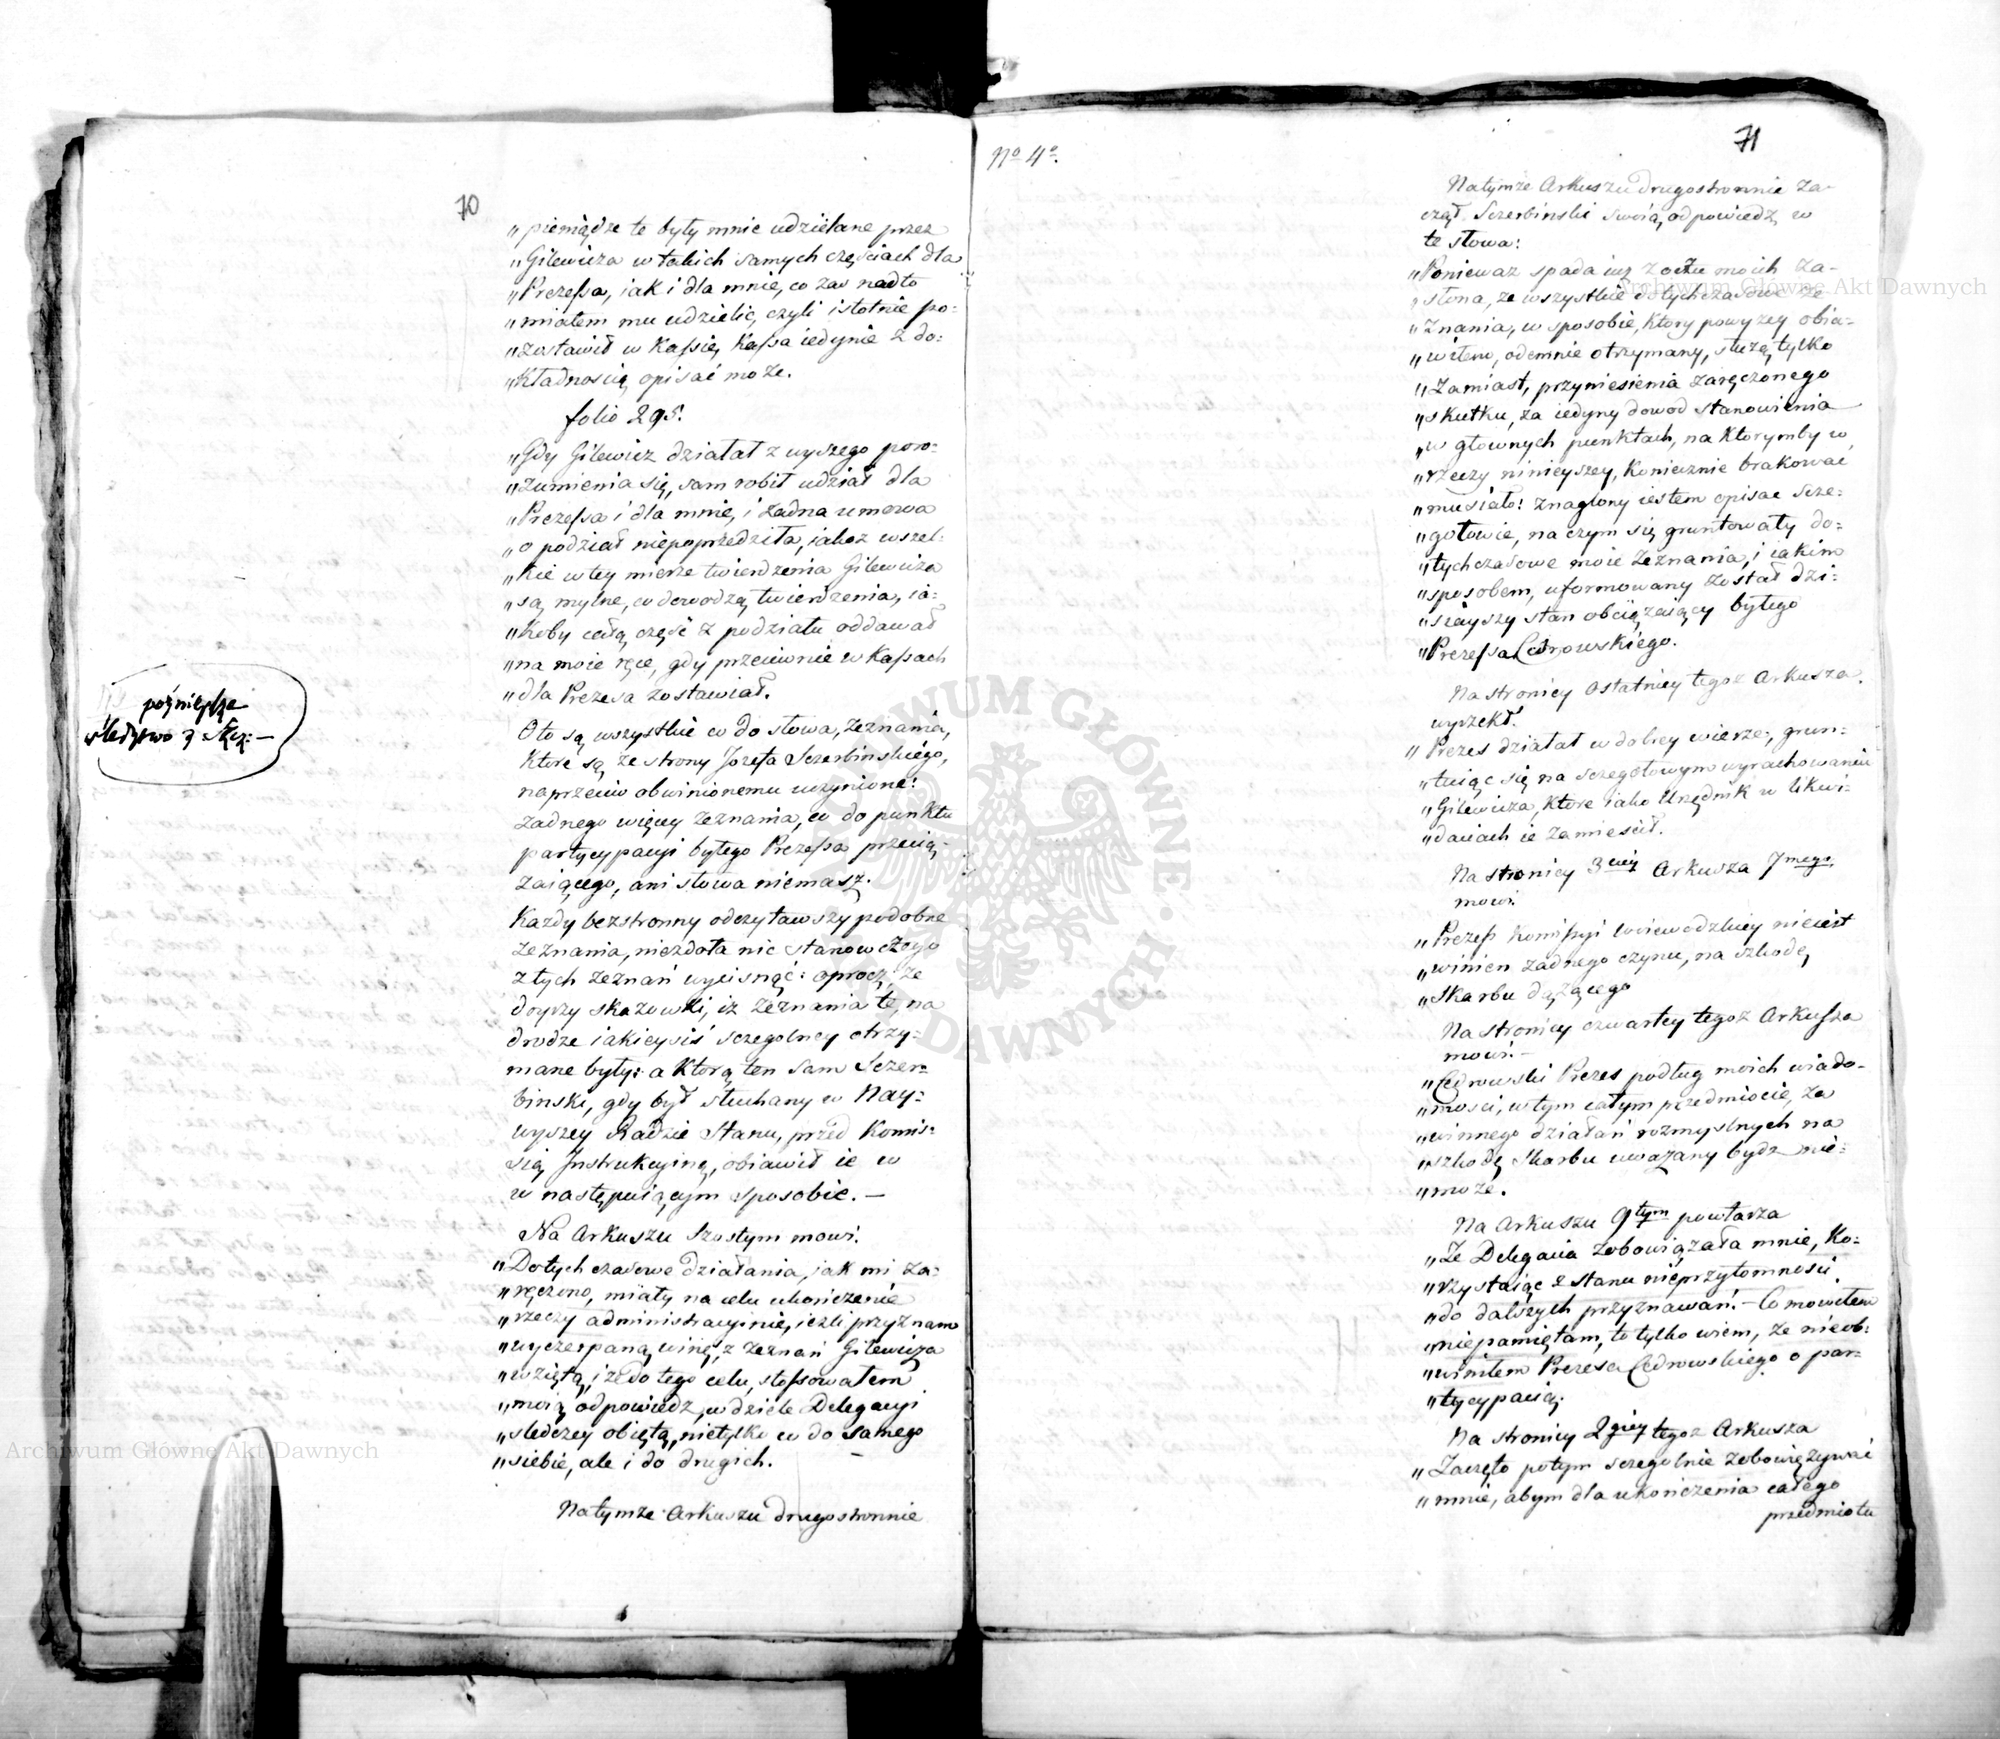 70
„pieniądze te były mnie udzielane przez
„Gilewicza w takich samych częściach dla
„Prezeſsa, jak i dla mnie, co zaś nadto
„miałem mu udzielić, czyli istotnie po-
„zostawił w Kaſsie, Kaſsa iedynie z do:
„kładnością opisać może.
folio 295.
„Gdy Gilewicz działał z wyszego poro-
„zumienia się, sam robił udział dla
„Prezeſsa i dla mnie, i żadna umowa
„o podział niepoprzedziła, iakoż wszel:
„kie w tey mierze twierdzenia Gilewicza
„są mylne, co dowodzą twierdzenia, ia:
„koby całą część z podziału oddawał
„na moie ręce, gdy przeciwnie w Kaſsach
„dla Prezesa zostawiał.
Oto są wszystkie co do słowa, zeznania,
które są ze strony Józefa Szczerbińskiego,
naprzeciw obwinionemu uczynione:
żadnego więcey zeznania, co do punktu
partycypacyi byłego Prezeſsa przecią-
żaiącego, ani słowa niemasz.
Każdy bezstronny odczytawszy podobne
zeznania, niezdoła nic stanowczego
z tych zeznań wycisnąć: oprócz, że
doyrzy skazówki, iż zeznania te, na
drodze iakieysiś szczególney otrzy-
mane były: a którą ten sam Sczer-
binski, gdy był słuchany w Nay-
wyszey Radzie Stanu, przed Komis-
sią Instrukcyiną, obiawił ie w
w następuiącym sposobie. —
Na Arkuszu szostym mowi.
„Dotychczasowe działania, jak mi za-
„ręczono, miały na celu ukończenie
„rzeczy administracyinie, ieżli przyznam
„wyczerpaną winę, z zeznań Gilewicza
„wziętą, i że do tego celu, stoſsowałem
„moią odpowiedź, w dziele Delegacyi
„sledczey obiętą, nietylko co do samego
„siebie, ale i do drugich.
Natymże Arkuszu drugostronnie
późnieysze
śledztwo z
No 4o.
71
Natymże Arkuszu drugostronnie za-
czął Sczerbinski swoią odpowiedź w
te słowa:
„Ponieważ spada iuż z oczu moich za-
„słona, że wszystkie dotychczasowe ze
„znania, w sposobie, który powyżey obia-
„wiłem, odemnie otrzymany, służą tylko
„zamiast, przyniesienia zaręczonego
„skutku, za iedyny dowod stanowienia
„w głównych punktach, na którymby w
„rzeczy ninieyszey, koniecznie brakować
„musiało: znaglony iestem opisać scze-
„gołowie, na czym się gruntowały do:
„tychczasowe moie zeznania, i iakim
„sposobem, uformowany został dzi:
„sieyszy stan obciążaiący byłego
„Prezeſsa Cedrowskiego.
Na stronicy ostatniey tegoż Arkusza
wyrzekł.
„Prezes działał w dobrey wierze, grun-
„tuiąc się na sczegołowym wyrachowaniu
„Gilewicza, które iako Urzędnik w likwi-
„daciach ie zamieścił.
Na stronicy 3ciey Arkusza 7mego
mowi.
„Prezeſs Komiſsyi Woiewodzkiey nieiest
„winien żadnego czynu, na szkodę
„Skarbu dążącego
Na stronicy czwartey tegoż Arkuſsza
mowi. —
„Cedrowski Prezes podług moich wiado-
„mosci, w tym całym przedmiocie, za
„winnego działań rozmyslnych na
„szkodę Skarbu uważany bydz nie-
„może.
Na Arkuszu 9tym powtarza
„Że Delegacia zobowiązała mnie, ko-
„rzystaiąc z stanu nieprzytomności
„do dalszych przyznawań. — Co mowiłem
„niepamiętam, to tylko wiem, że nieob-
„winiłem Prezesa Cedrowskiego o par-
„tycypacią.
Na stronicy 2giey tegoż Arkusza
„Zaczęto potym sczegolnie zobowięzywać
„mnie, abym dla ukończenia całego
przedmiotu
ARCHIWUM GŁÓWNE AKT DAWNYCH
Archiwum Główne Akt Dawnych
Archiwum Główne Akt Dawnych